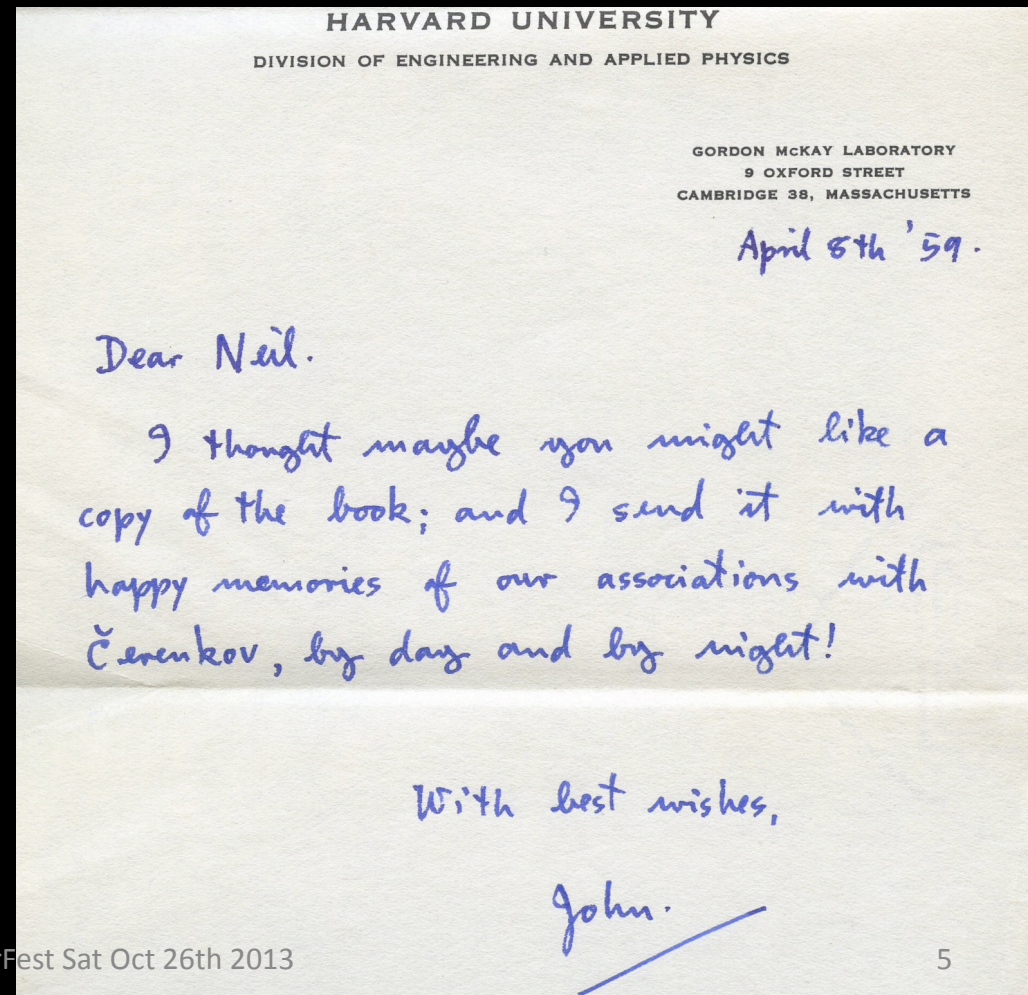 HARVARD UNIVERSITY
DIVISION OF ENGINEERING AND APPLIED PHYSICS
GORDON McKAY LABORATORY
9 OXFORD STREET
CAMBRIDGE 38, MASSACHUSETTS
April 8th '59.
Dear Neil.
I thought maybe you might like a
copy of the book; and I send it with
happy memories of our associations with
Čerenkov, by day and by night!
With best wishes,
John.
Fest Sat Oct 26th 2013
5